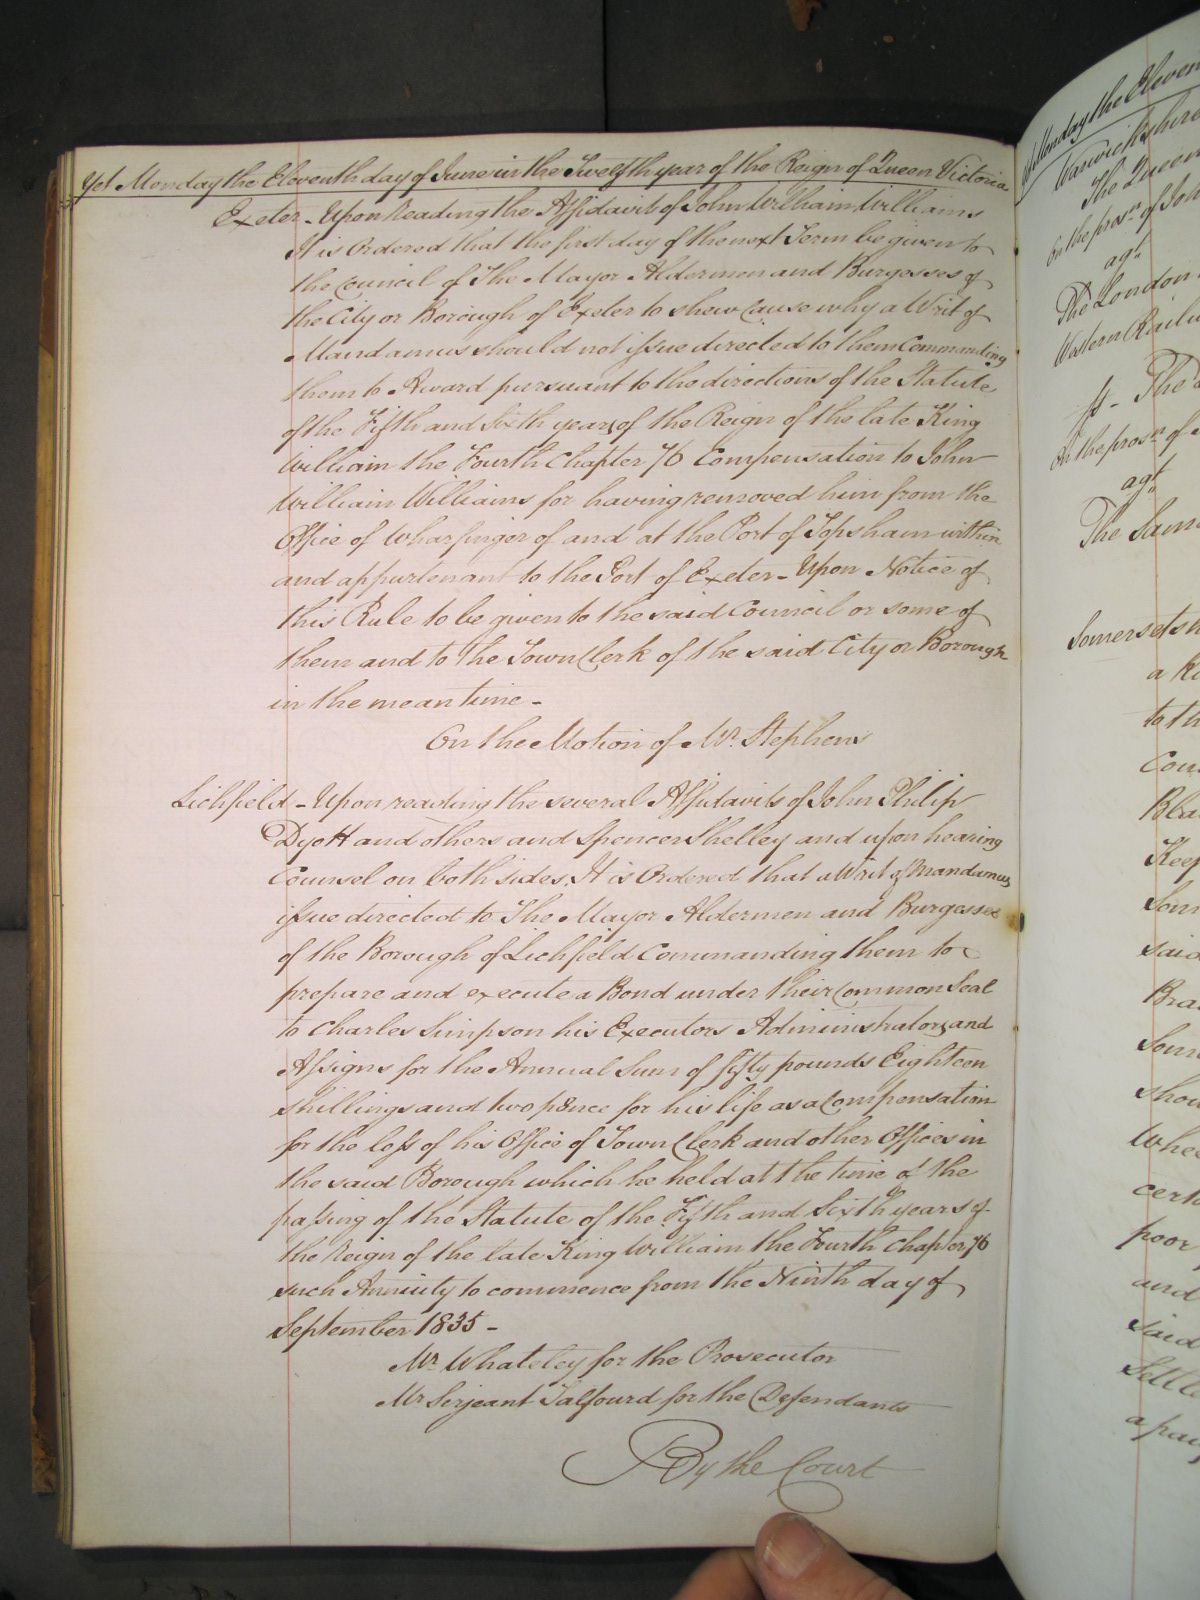 Yet Monday the Eleventh day of June in the Twelfth year of the Reign of Queen Victoria
Exeter - Upon Reading the Affidavit of John William Williams
It is Ordered that the first day of the next Term be given to
the Council of The Mayor Aldermen and Burgesses of
the City or Borough of Exeter to shew Cause why a Writ of
Mandamus should not issue directed to them Commanding
them to Award pursuant to the directions of the Statute
of the Fifth and Sixth years of the Reign of the late King
William the Fourth Chapter 76 Compensation to John
William Williams for having removed him from the
Office of Wharfinger of and at the Port of Topsham within
and appurtenant to the Port of Exeter - Upon Notice of
this Rule to be given to the said Council or some of
them and to the Town Clerk of the said City or Borough
in the mean time -
On the Motion of Mr. Stephens
Lichfield - Upon reading the several Affidavits of John Philip
Dyott and others and Spencer Shelley and upon hearing
Counsel on both sides, It is Ordered that a Writ of Mandamus
issue directed to The Mayor Aldermen and Burgesses
of the Borough of Lichfield Commanding them to
prepare and execute a Bond under their Common Seal
to Charles Simpson his Executors Administrators and
Assigns for the Annual Sum of fifty pounds Eighteen
shillings and two pence for his life as a Compensation
for the loss of his Office of Town Clerk and other Offices in
the said Borough which he held at the time of the
passing of the Statute of the Fifth and Sixth years of
the Reign of the late King William the Fourth Chapter 76
such Annuity to commence from the Ninth day of
September 1835 -
Mr Whateley for the Prosecutor
Mr Serjeant Talfourd for the Defendants
By the Court
Yet Monday the Eleven
Warwickshire
The Queen
On the prosn of John
agt
The London
Western Railw
The
On the prosn of
agt
The Same
Somersetsh
to th
Cou
Bla
Keep
Som
said
Bra
Som
shou
Whe
cert
poor
and
said
Settle
a pau